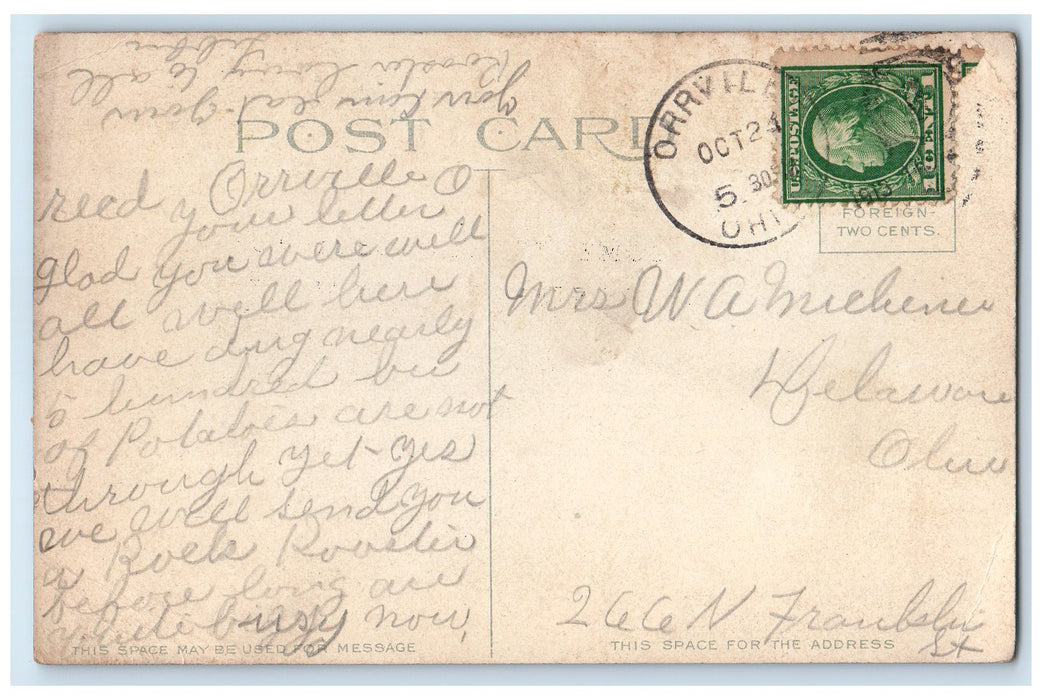 POST CARD
ORRVILLE
OCT 24
5 30
1913
OHIO
U.S. POSTAGE
1 CENT 1
FOREIGN-
TWO CENTS.
Orrville O
recd your letter
glad you were well
all well here
have dug nearly
5 hundred bu
of Potatoes are not
through yet - yes
we will send you
a Rock Rooster
before long are
quite busy now,
Rooster
to all
Mrs W A Michener
Delaware
Ohio
266 N Franklin
St
THIS SPACE MAY BE USED FOR MESSAGE
THIS SPACE FOR THE ADDRESS